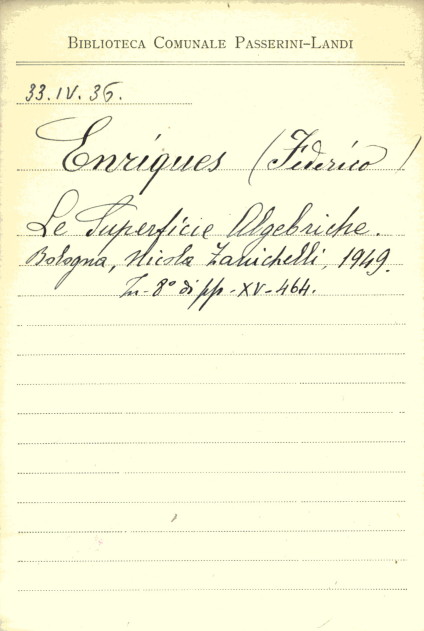 BIBLIOTECA COMUNALE PASSERINI-LANDI
33.IV.36.
Enriques (Federico)
Le Superficie Algebriche.
Bologna, Nicola Zanichelli, 1949.
In-8° di pp. XV-464.